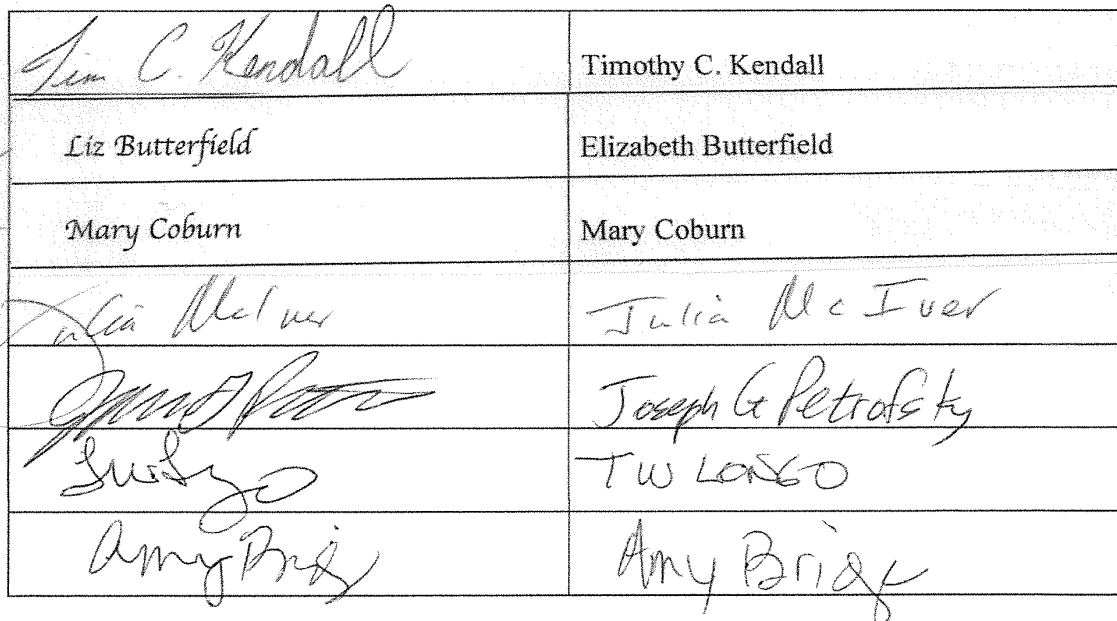 Tim C. Kendall Timothy C. Kendall
Liz Butterfield Elizabeth Butterfield
Mary Coburn Mary Coburn
Julia McIver Julia McIver
Joseph G Petrofsky
TW LONGO
Amy Amy